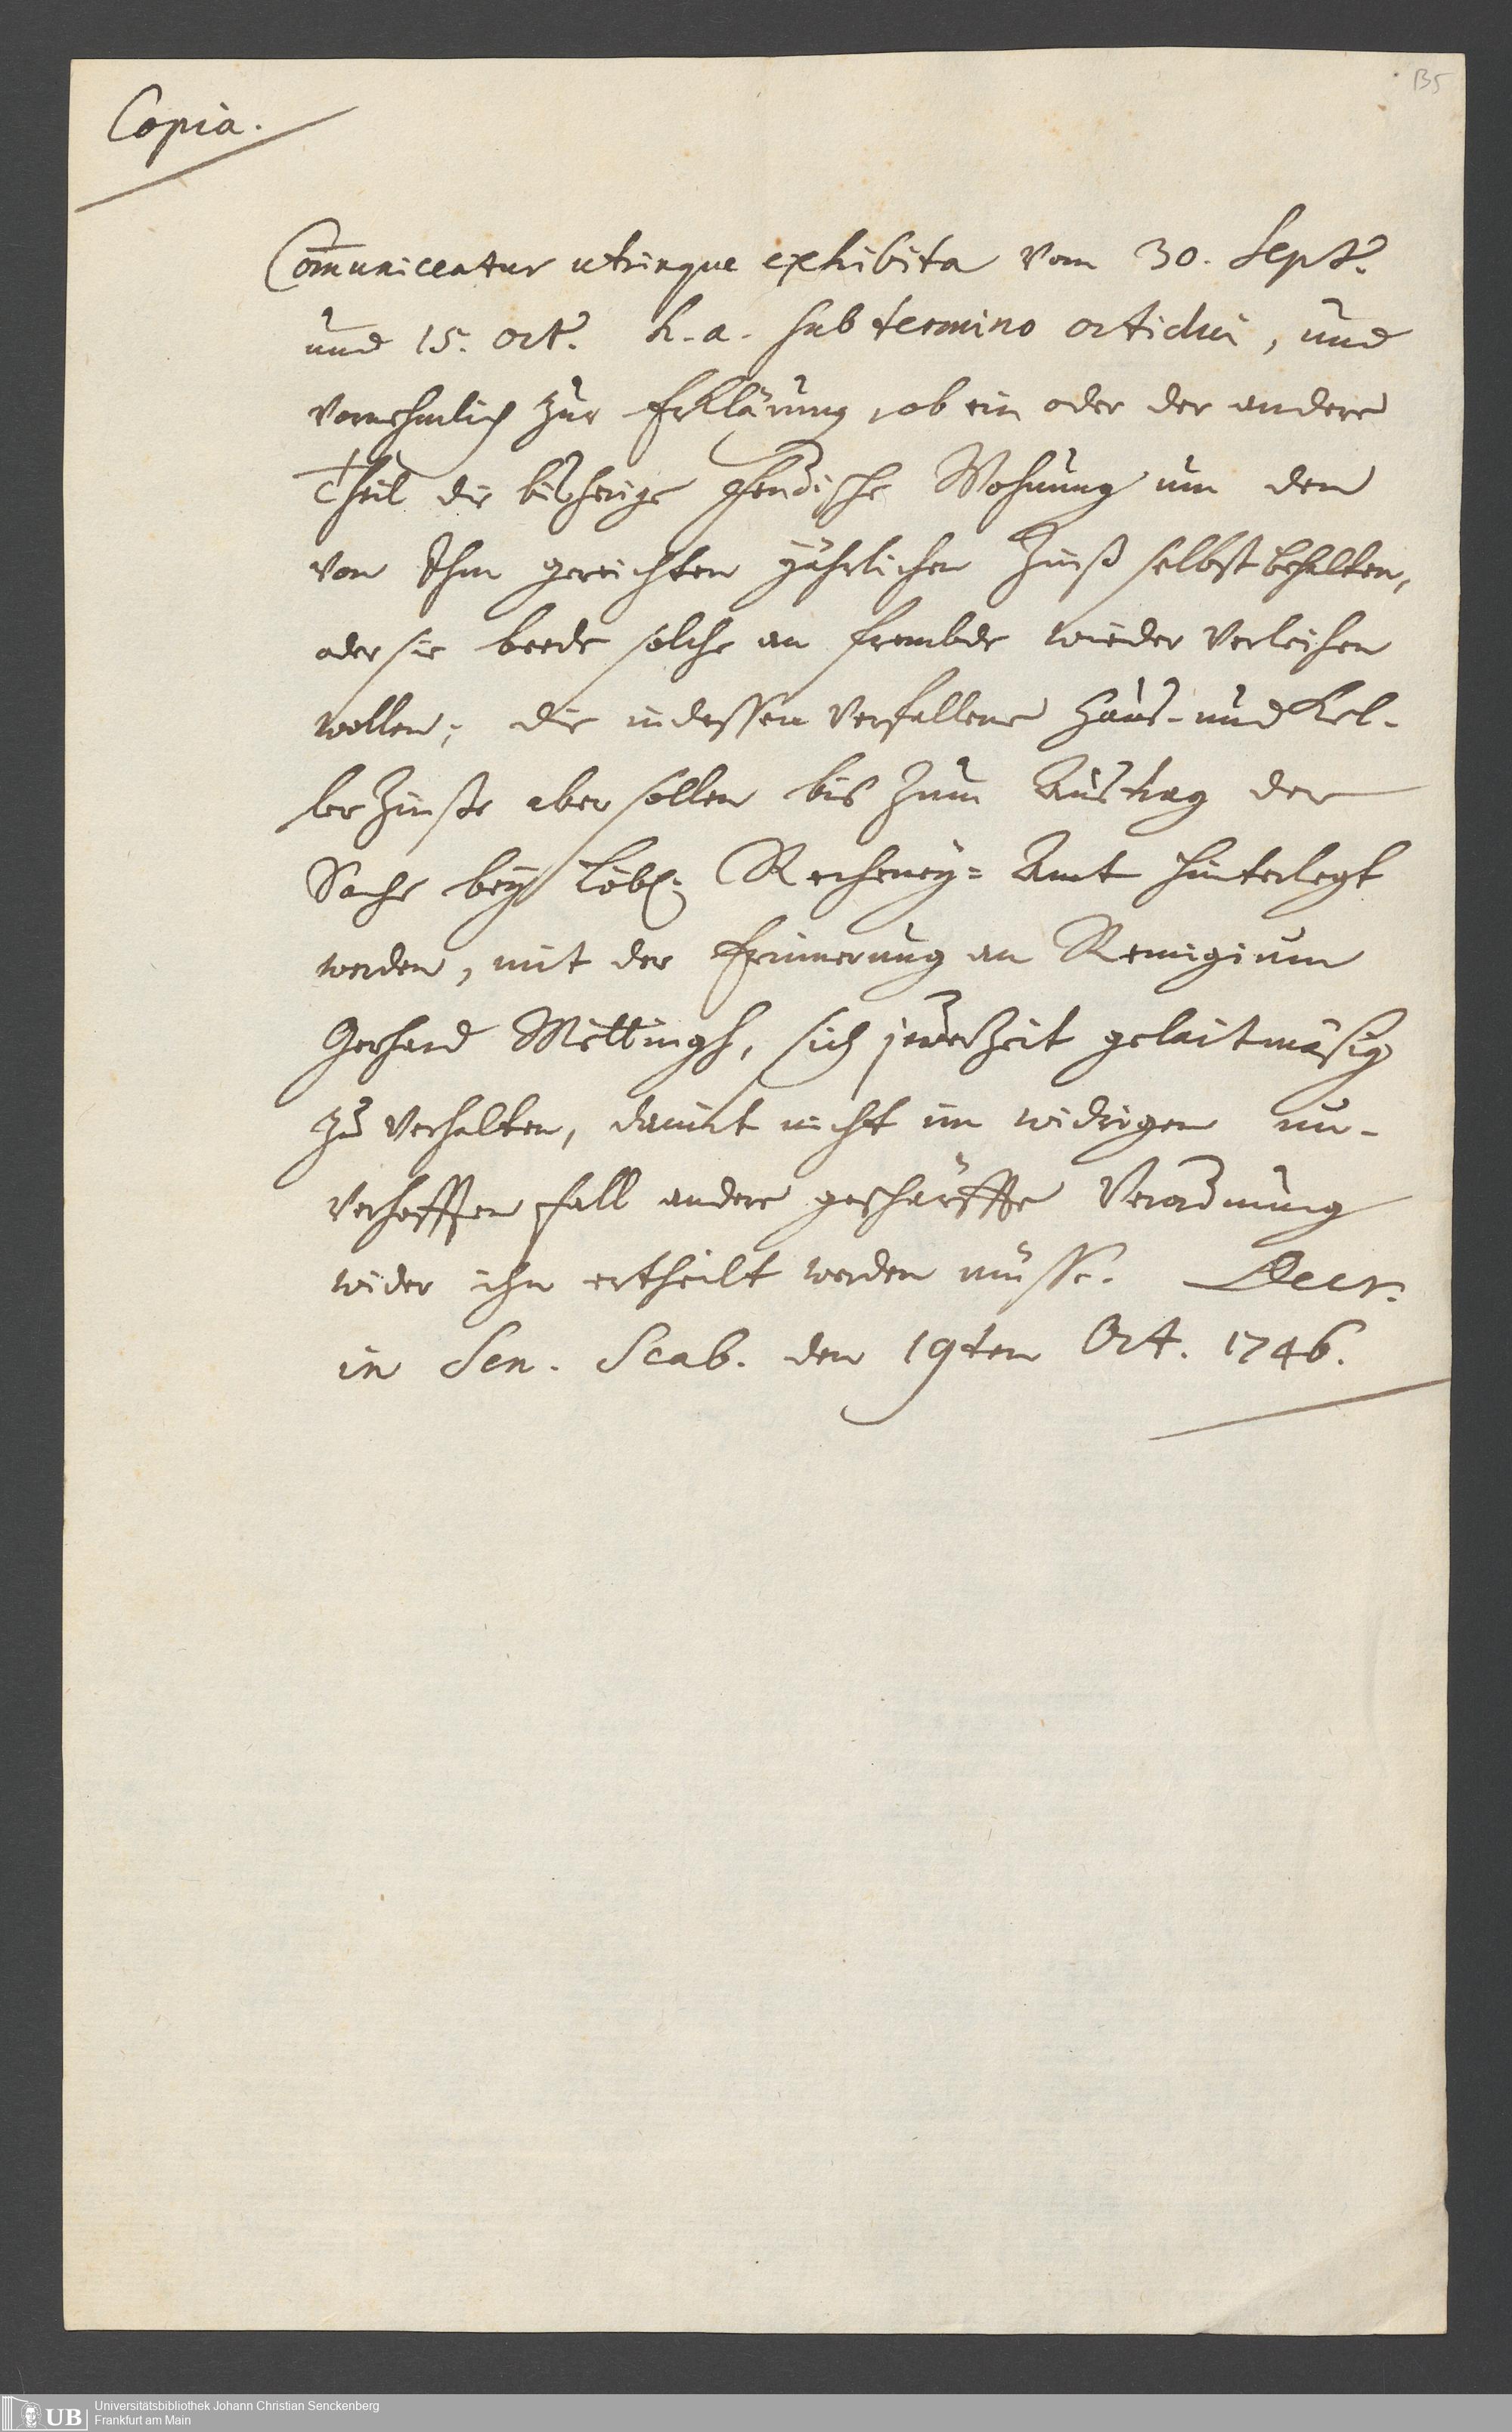 B5
Copia.
Com̅unicentur utrinque exhibita vom 30. Sept.
und 15. Oct. h. a. sub termino octidui, und
vornehmlich zur Erklärung, ob ein oder der andere
Theil die bißherige Wohnung um den
von Ihm gereichten jährlichen Zinß selbst behalten,
oder sie beede solche an frembde wieder verleihen
wollen; die indessen verfallene Hauß- und Kel-
ler Zinße aber sollen biß zum Austrag der
Sache bey löbl. Recheney-Amt hinterlegt
werden, mit der Erinnerung an Remigium
Gerhard Mettingh, sich jederzeit gelaitmäsig
zu verhalten, damit nicht im widrigen un-
verhofften fall andere geschärffte Verordnung
wider ihn ertheilt werden müsse. Decr.
in Sen. Scab. den 19ten Oct. 1746.
UB
Universitätsbibliothek Johann Christian Senckenberg
Frankfurt am Main